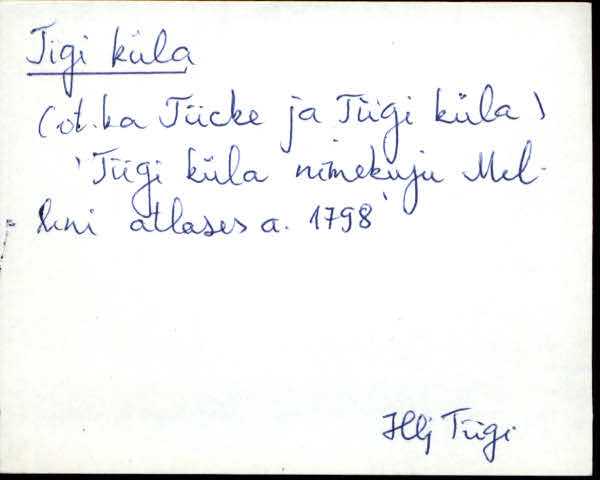 Tigi küla
(vt. ka Tücke ja Tiigi küla)
'Tiigi küla nimekuju Mel-
lini atlases a. 1798'
Hlj Tiigi